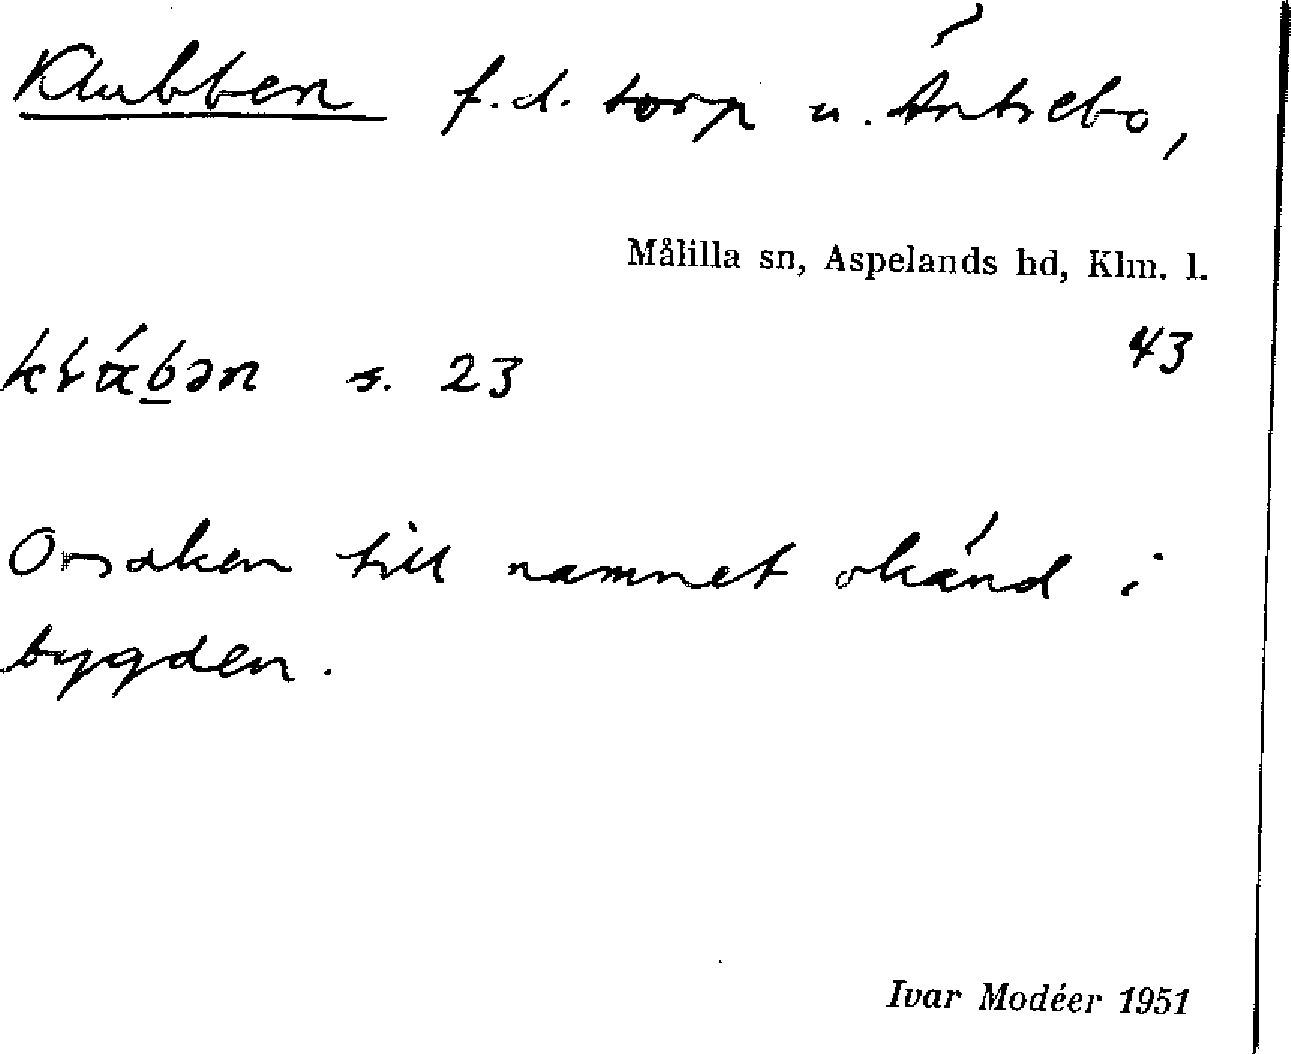 Klubben f.d. torp u. Äntsebo,
Målilla sn, Aspelands hd, Klm. l.
43
s. 23
Orsaken till namnet okänd i
bygden.
Ivar Modéer 1951